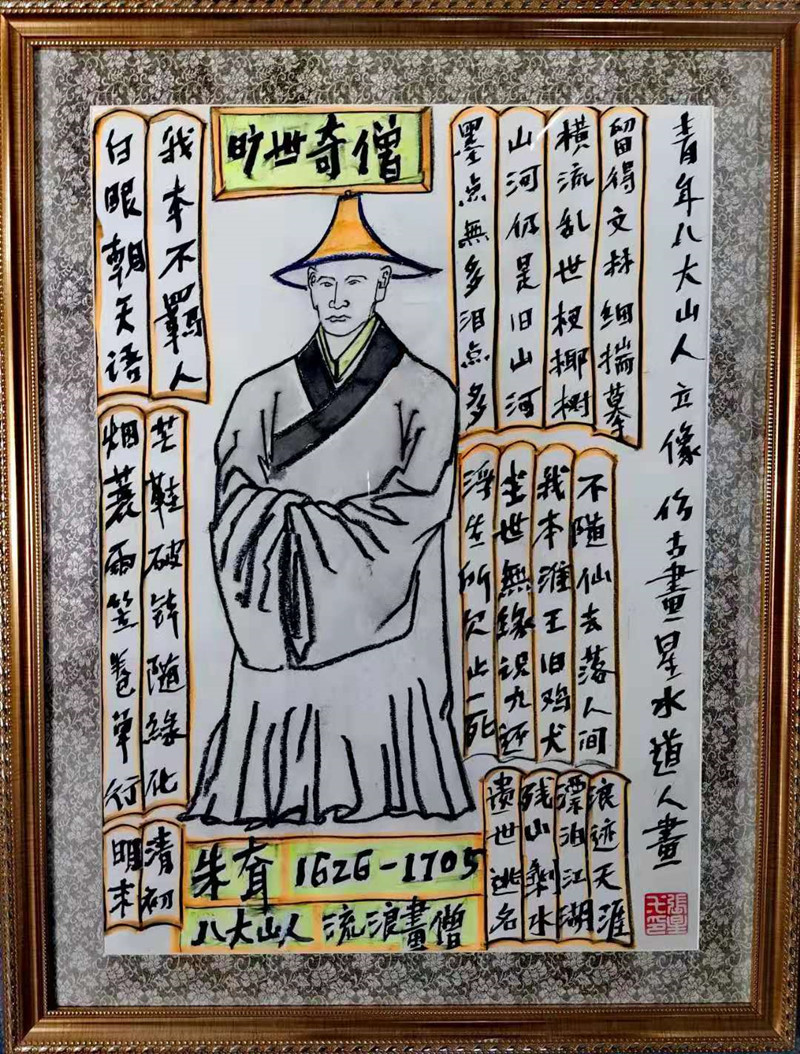 旷世奇僧
白眼朝天语
我本不羈人
墨点無多泪点多
山河仍是旧山河
横流乱世杈椰树
留得文林细揣摹
青年八大山人立像仿古畫星水道人畫
烟蓑雨笠卷单行
芒鞋破钵随緣化
浮生所欠止一死
尘世無緣识九还
我本淮王旧鸡犬
不随仙去落人间
遗世逃名
残山剩水
漂泊江湖
浪迹天涯
明末
清初
朱耷 1626-1705
八大山人 流浪畫僧